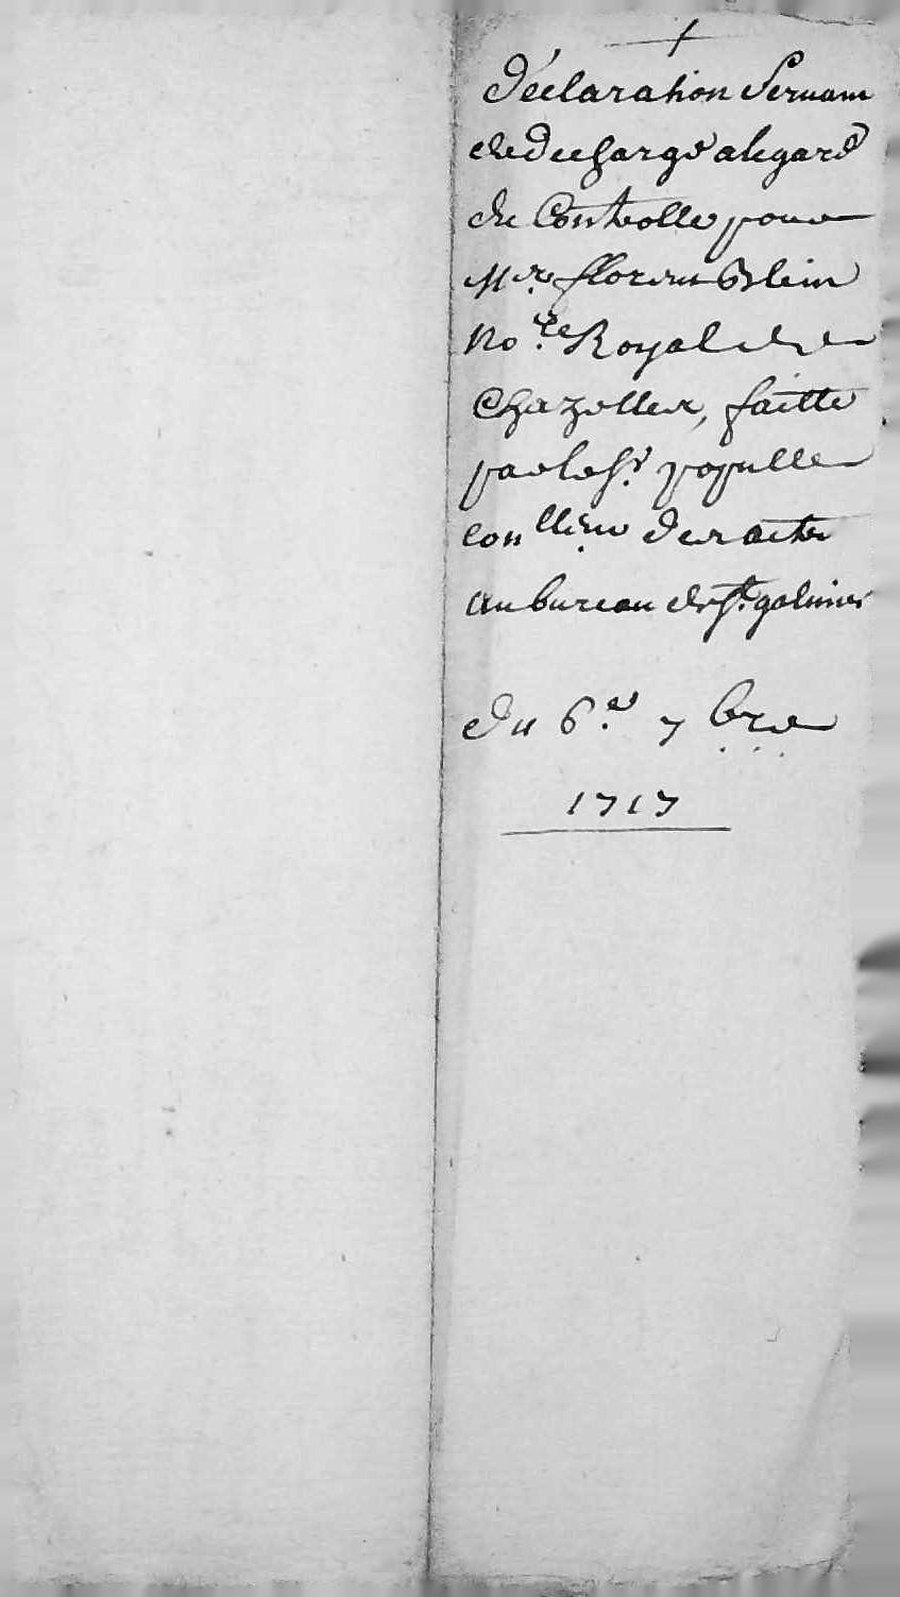 +
Déclaration Servant
de decharge a legard
du Controlle pour
Mre florent Blein
Nore Royal de
Chazelles, faitte
par le Sr populle
conlleur des actes
au bureau de St galmier
du 6e 7bre
1717